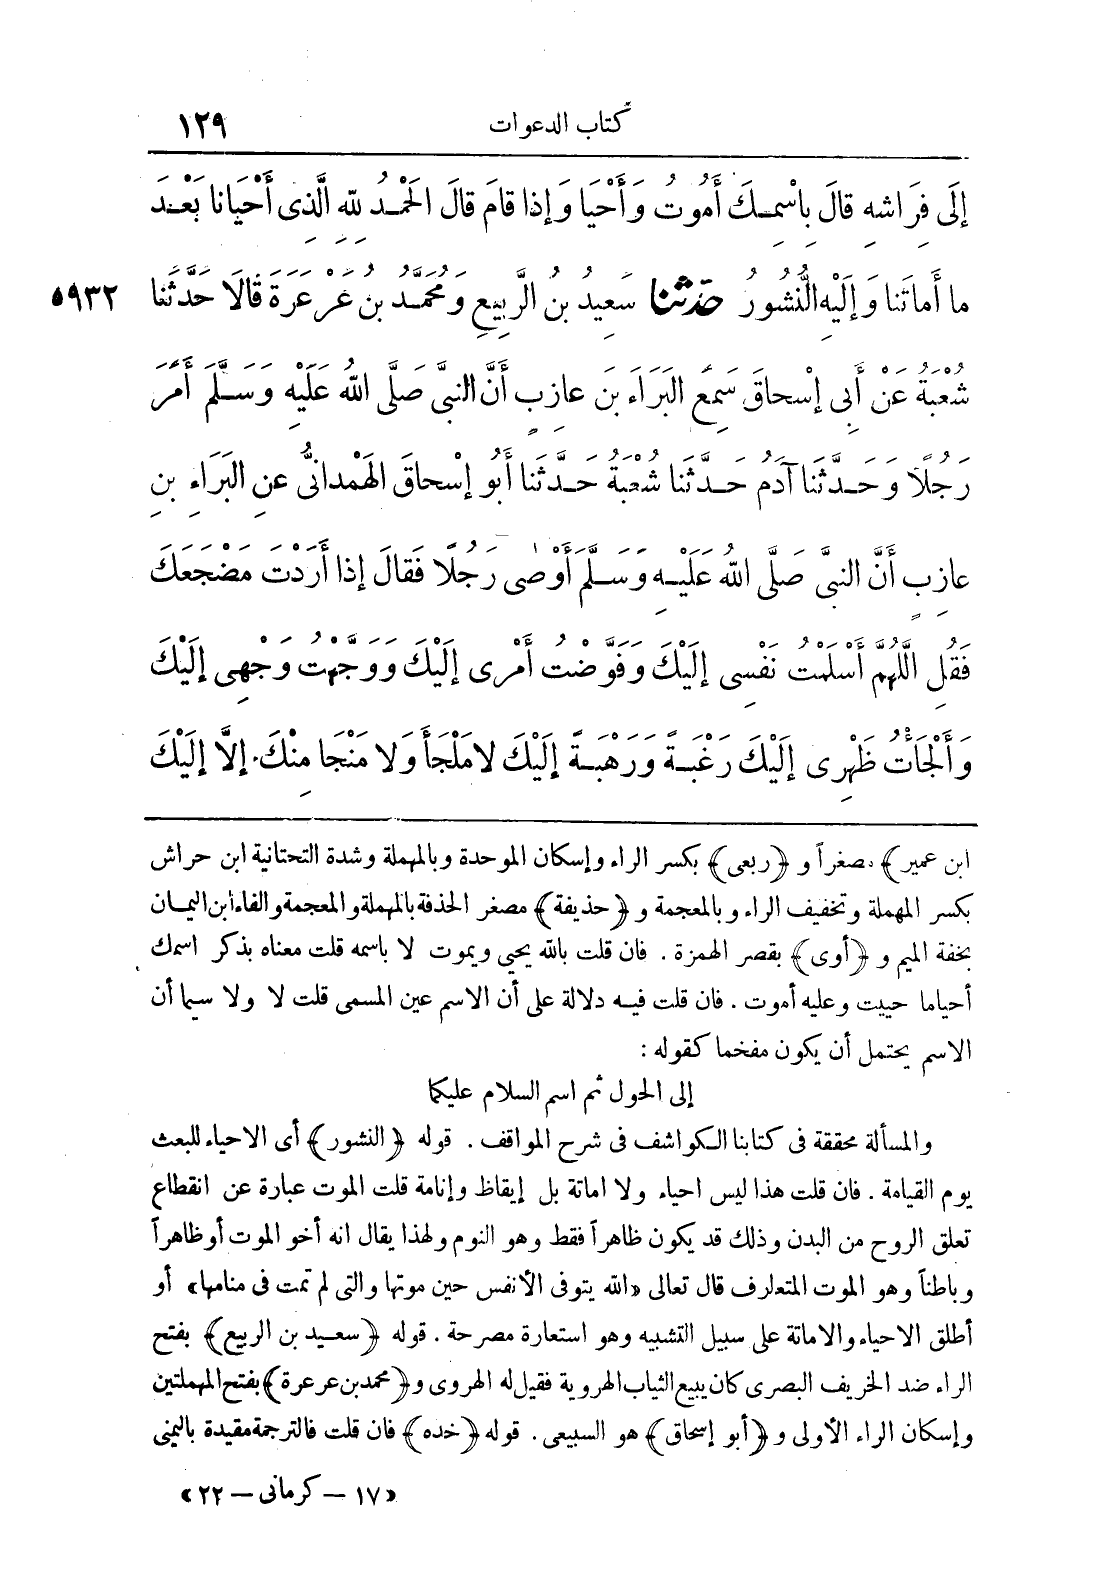 كتاب الدعوات ١٢٩
إِلَى فِرَاشِهِ قَالَ بِاسْمِكَ أَمُوتُ وَأَحْيَا وَإِذَا قَامَ قَالَ الْحَمْدُ لِلّهِ الَّذِى أَحْيَانا بَعْدَ
ما أَماتَنا وَإِلَيْهِ النُّشُورُ حَدَّثَنَا سَعِيدُ بنُ الرَّبِيعِ وَمُحَمَّدُ بنُ عَرْعَرَةَ قَالَا حَدَّثَنا ٥٩٣٢
شُعْبَةُ عَنْ أَبِى إِسْحاقَ سَمِعَ البَرَاءَ بنَ عازِبٍ أَنَّ النبىَّ صَلَّى اللهُ عَلَيْهِ وَسَلَّمَ أَمَرَ
رَجُلًا وَحَدَّثَنا آدَمُ حَدَّثَنا شُعْبَةُ حَدَّثَنا أَبُو إِسْحاقَ الهَمْدانىُّ عنِ البَرَاءِ بنِ
عازِبٍ أَنَّ النبىَّ صَلَّى اللهُ عَلَيْهِ وَسَلَّمَ أَوْصٰى رَجُلًا فَقالَ إذا أَرَدْتَ مَضْجَعَكَ
فَقُلِ اللَّهُمَّ أَسْلَمْتُ نَفْسِى إِلَيْكَ وَفَوَّضْتُ أَمْرِى إِلَيْكَ وَوَجَّهْتُ وَجْهِى إِلَيْكَ
وَأَلْجَأْتُ ظَهْرِى إِلَيْكَ رَغْبَةً وَرَهْبَةً إِلَيْكَ لا مَلْجَأَ وَلا مَنْجَا مِنْكَ إلَّا إِلَيْكَ
ابن عمير﴾ مصغراً و ﴿ربعى﴾ بكسر الراء وإسكان الموحدة وبالمهملة وشدة التحتانية ابن حراش
بكسر المهملة وتخفيف الراء وبالمعجمة و ﴿حذيفة﴾ مصغر الحذفة بالمهملة والمعجمة والفاء ابن اليمان
بخفة الميم و ﴿أوى﴾ بقصر الهمزة . فان قلت بالله يحيى ويموت لا باسمه قلت معناه بذكر اسمك
أحياما حييت وعليه أموت . فان قلت فيه دلالة على أن الاسم عين المسمى قلت لا ولا سيما أن
الاسم يحتمل أن يكون مفخما كقوله :
إلى الحول ثم اسم السلام عليكما
والمسألة محققة فى كتابنا الكواشف فى شرح المواقف . قوله ﴿النشور﴾ أى الاحياء للبعث
يوم القيامة . فان قلت هذا ليس احياء ولا اماتة بل إيقاظ وإنامة قلت الموت عبارة عن انقطاع
تعلق الروح من البدن وذلك قد يكون ظاهراً فقط وهو النوم ولهذا يقال انه أخو الموت أو ظاهراً
وباطناً وهو الموت المتعارف قال تعالى «الله يتوفى الأنفس حين موتها والتى لم تمت فى منامها» أو
أطلق الاحياء والاماتة على سبيل التشبيه وهو استعارة مصرحة . قوله ﴿سعيد بن الربيع﴾ بفتح
الراء ضد الخريف البصرى كان يبيع الثياب الهروية فقيل له الهروى و﴿محمد بن عرعرة﴾ بفتح المهملتين
وإسكان الراء الأولى و ﴿أبو إسحاق﴾ هو السبيعى . قوله ﴿خده﴾ فان قلت فالترجمة مقيدة باليمنى
«١٧ – كرمانى – ٢٢»